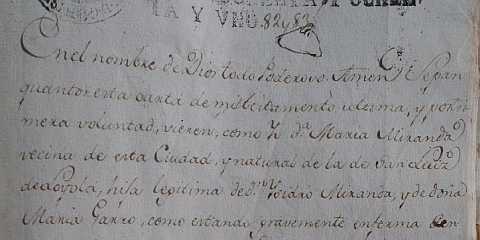 TA Y UNO. 82 y 83
En el nombre de Dios todo Poderoso Amen Sepan
quantos esta carta de mi testamento ultima, y postri
mera voluntad, vieren, como Yo da. Maria Miranda
vecina de esta Ciudad, y natural de la de San Luiz
de Loyola, hija legitima de dn. Ysidro Miranda, y de doña
Maria Garro, como estando gravemente enferma